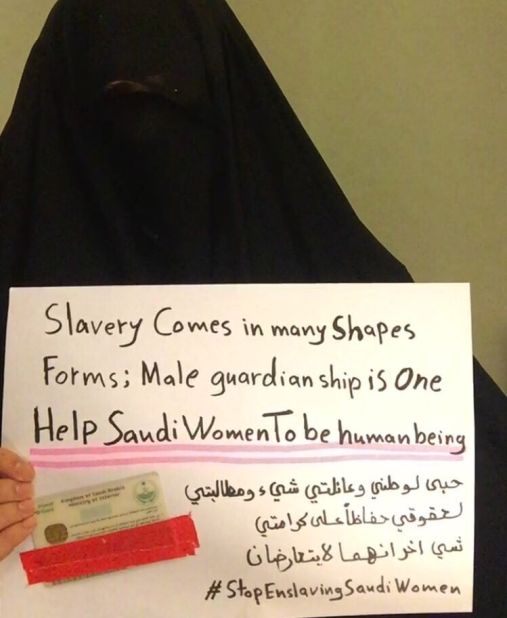 Slavery Comes in many Shapes
Forms; Male guardianship is One
Help Saudi Women To be human being
حبي لوطني وعائلتي شيء ومطالبتي
لحقوقي حفاظاً على كرامتي
شي اخر انهما لا يتعارضان
#StopEnslavingSaudiWomen
Kingdom of Saudi Arabia
Ministry of Interior